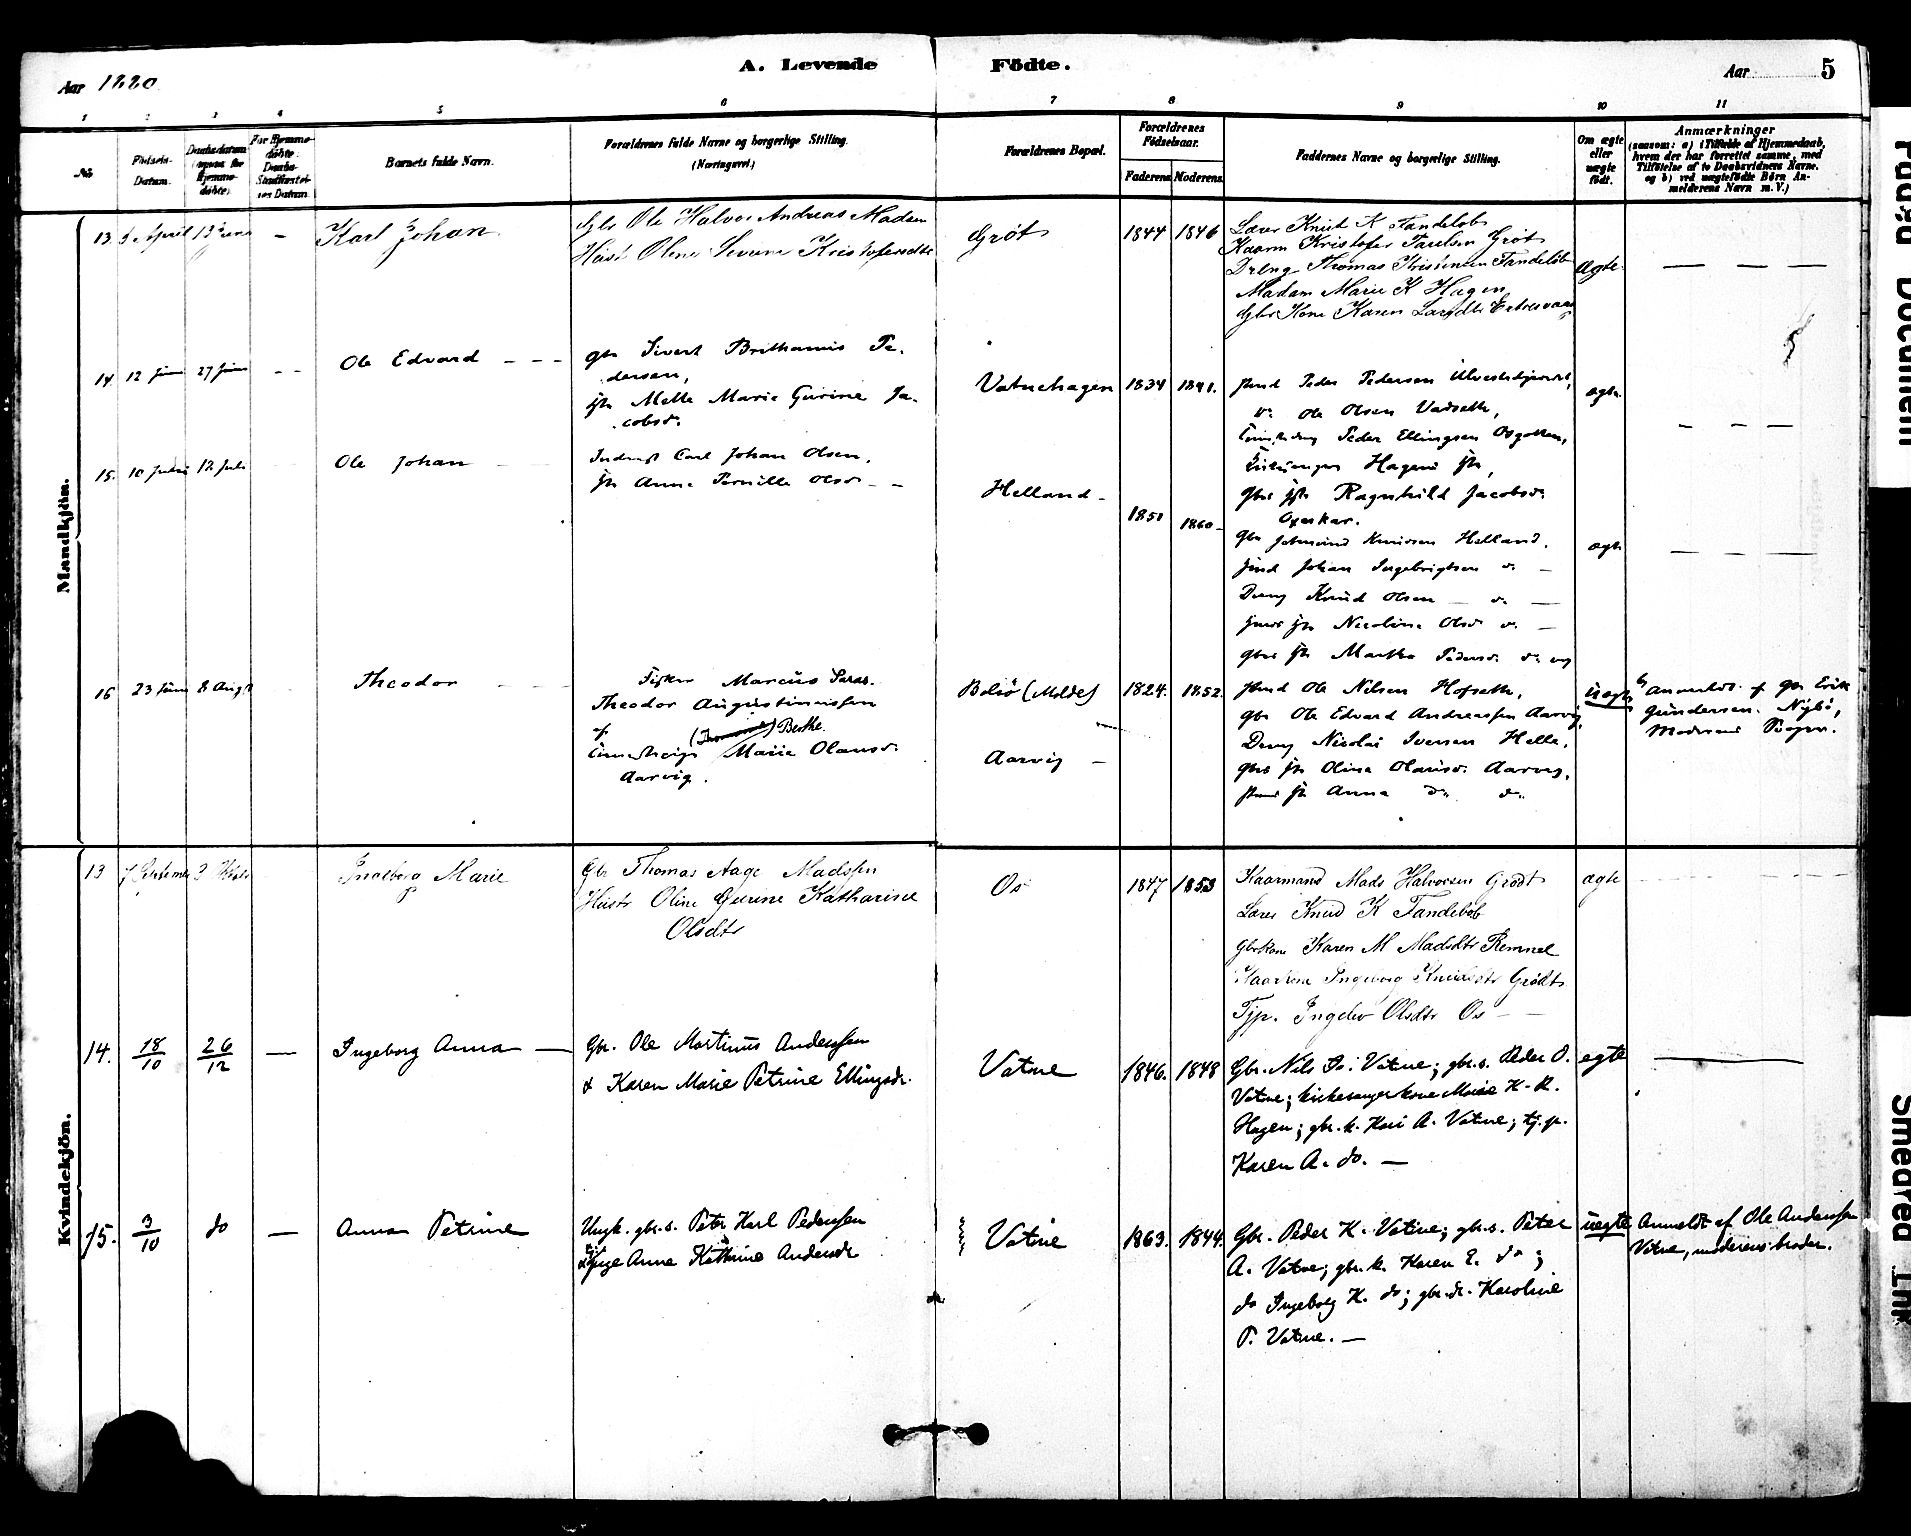 Aar 1880.
A. Levende
Födte.
Aar
5
1
2
3
4
5
6
7
8
9
10
11
No
Födsels-
Datum.
Daabsdatum
(ogsaa for
Hjemme-
döbte).
For Hjemme-
döbte:
Daabs-
Stadfæstel-
ses Datum.
Barnets fulde Navn.
Forældrenes fulde Navne og borgerlige Stilling.
(Næringsvei.)
Forældrenes Bopæl.
Forældrenes
Födselsaar.
Faderens
Moderens
Faddernes Navne og borgerlige Stilling.
Om ægte
eller
uægte
födt.
Anmærkninger
(saasom: a) i Tilfælde af Hjemmedaab,
hvem der har forrettet samme, med
Tilföielse af to Daabsvidners Navne.
og b) ved uægtefödte Börn An-
melderens Navn m. V.)
Mandkjön.
13. April 13 Karl Johan
Gbr Ole Halvor Andreas Madsen
Hust Oline Severine Kristofersdtr
Gröt 1844 1846
Lærer Knut K Tandeløb
Kaarm Kristofer Paulsen Gröt
Dreng Thomas Kristensen Tandeløb
Madam Marie K Hagen
Gbr Kone Karen Larsdtr
ægte — — —
14. 12 Juni 27 Juni -- Ole Edvard - - -
gbr Sivert Brithanus Pe-
dersen,
Mette Marie Gurine Ja-
cobsd.
Vatnehagen 1834 1841.
Peder Pedersen
Ole Olsen Vadseth,
Peder Ellingsen
Hagens
Ragnhild Jacobsd.
ægte
- - —
15. 10 Juni 12 Juli Ole Johan - -
Inderst Carl Johan Olsen,
Anna Pernille Olsd. - -
Helland - 1850 1860 -
gbr Knudsen Helland.
Johan Ingebrigtsen d. -
Dreng Knud Olsen — d. —
Nicoline Olsd. d. —
gbrs Martha Pedersd. d.
ægte — — —
16 23 Juni 8 Augt Theodor - - -
Fisker Marcus Saras.
Theodor Augustinussen
af
Berthe
Marie Olausd.
Aarvig.
Bolsö (Molde) 1824. 1852.
Aarvig -
Ole Nilsen Hofseth,
gbr Ole Edvard Andreassen Aarvig,
Dreng Nicolai Iversen Helle,
gbrs Olina Olausd. Aarvig,
Anna d. d.
uægte
b) Anmeldt af gbr Erik
Gundersen Nybö,
Moderens Svoger.
Kvindekjön.
13 7 Septembr 3 Oktobr Ingeborg Marie
Gbr Thomas Aage Madsen
Hustr Oline Gurine Katharine
Olsdtr
Os 1847 1853
Kaarmand Mads Halvorsen Grødt
Lærer Knud K Tandeløb
Gbrkone Karen M Madsdtr Remmel
Kaarkone Ingeborg Knudsdtr Grødt
Tjp. Ingebor Olsdtr Os - -
ægte
14. 18/10 26/12 — Ingeborg Anna —
Gbr. Ole Martinus Anderssen
& Karen Marie Petrine Ellingsdr.
Vatne 1846. 1848
Gbr. Nils Jo. Vatne; gbr.s. Peder O.
Vatne; kirkesangerkone Marie K.R.
Hagen; gbr.k. Kari A. Vatne; tj.p.
Karen A. do. —
egte
15. 3/10 do — Anna Petrine
Ungk. gbr.s. Peter Karl Pederssen
& Pige Anna Kathrine Andersdr
Vatne 1863. 1844.
Gbr. Peder K. Vatne; gbr.s. Peter
A. Vatne; gbr.k. Karen E. do;
do Ingeborg K. do; gbr.d. Karoline
P. Vatne. —
uegte
Anmeldt af Ole Anderssen
Vatne, moderens broder.
Smeared Ink